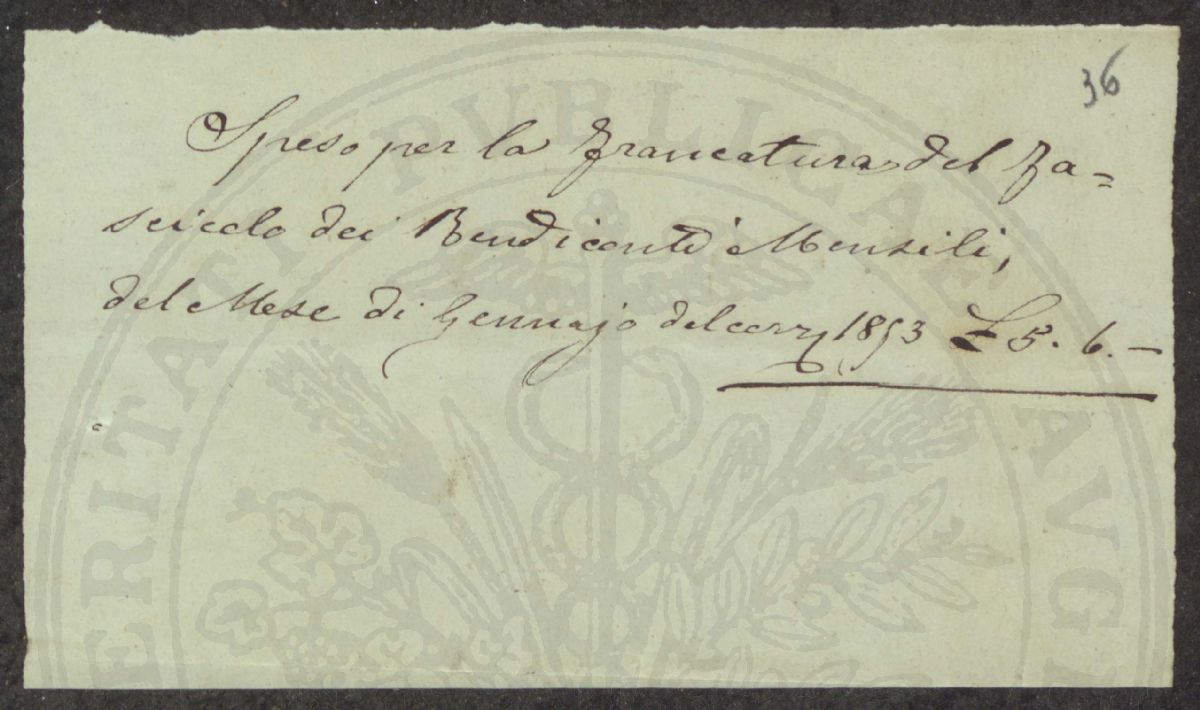 36
Speso per la francatura del Fa=
scicolo dei Rendiconti Mensili,
del Mese di Gennajo del corr 1853 £ 5. 6. —
PVBLICAE